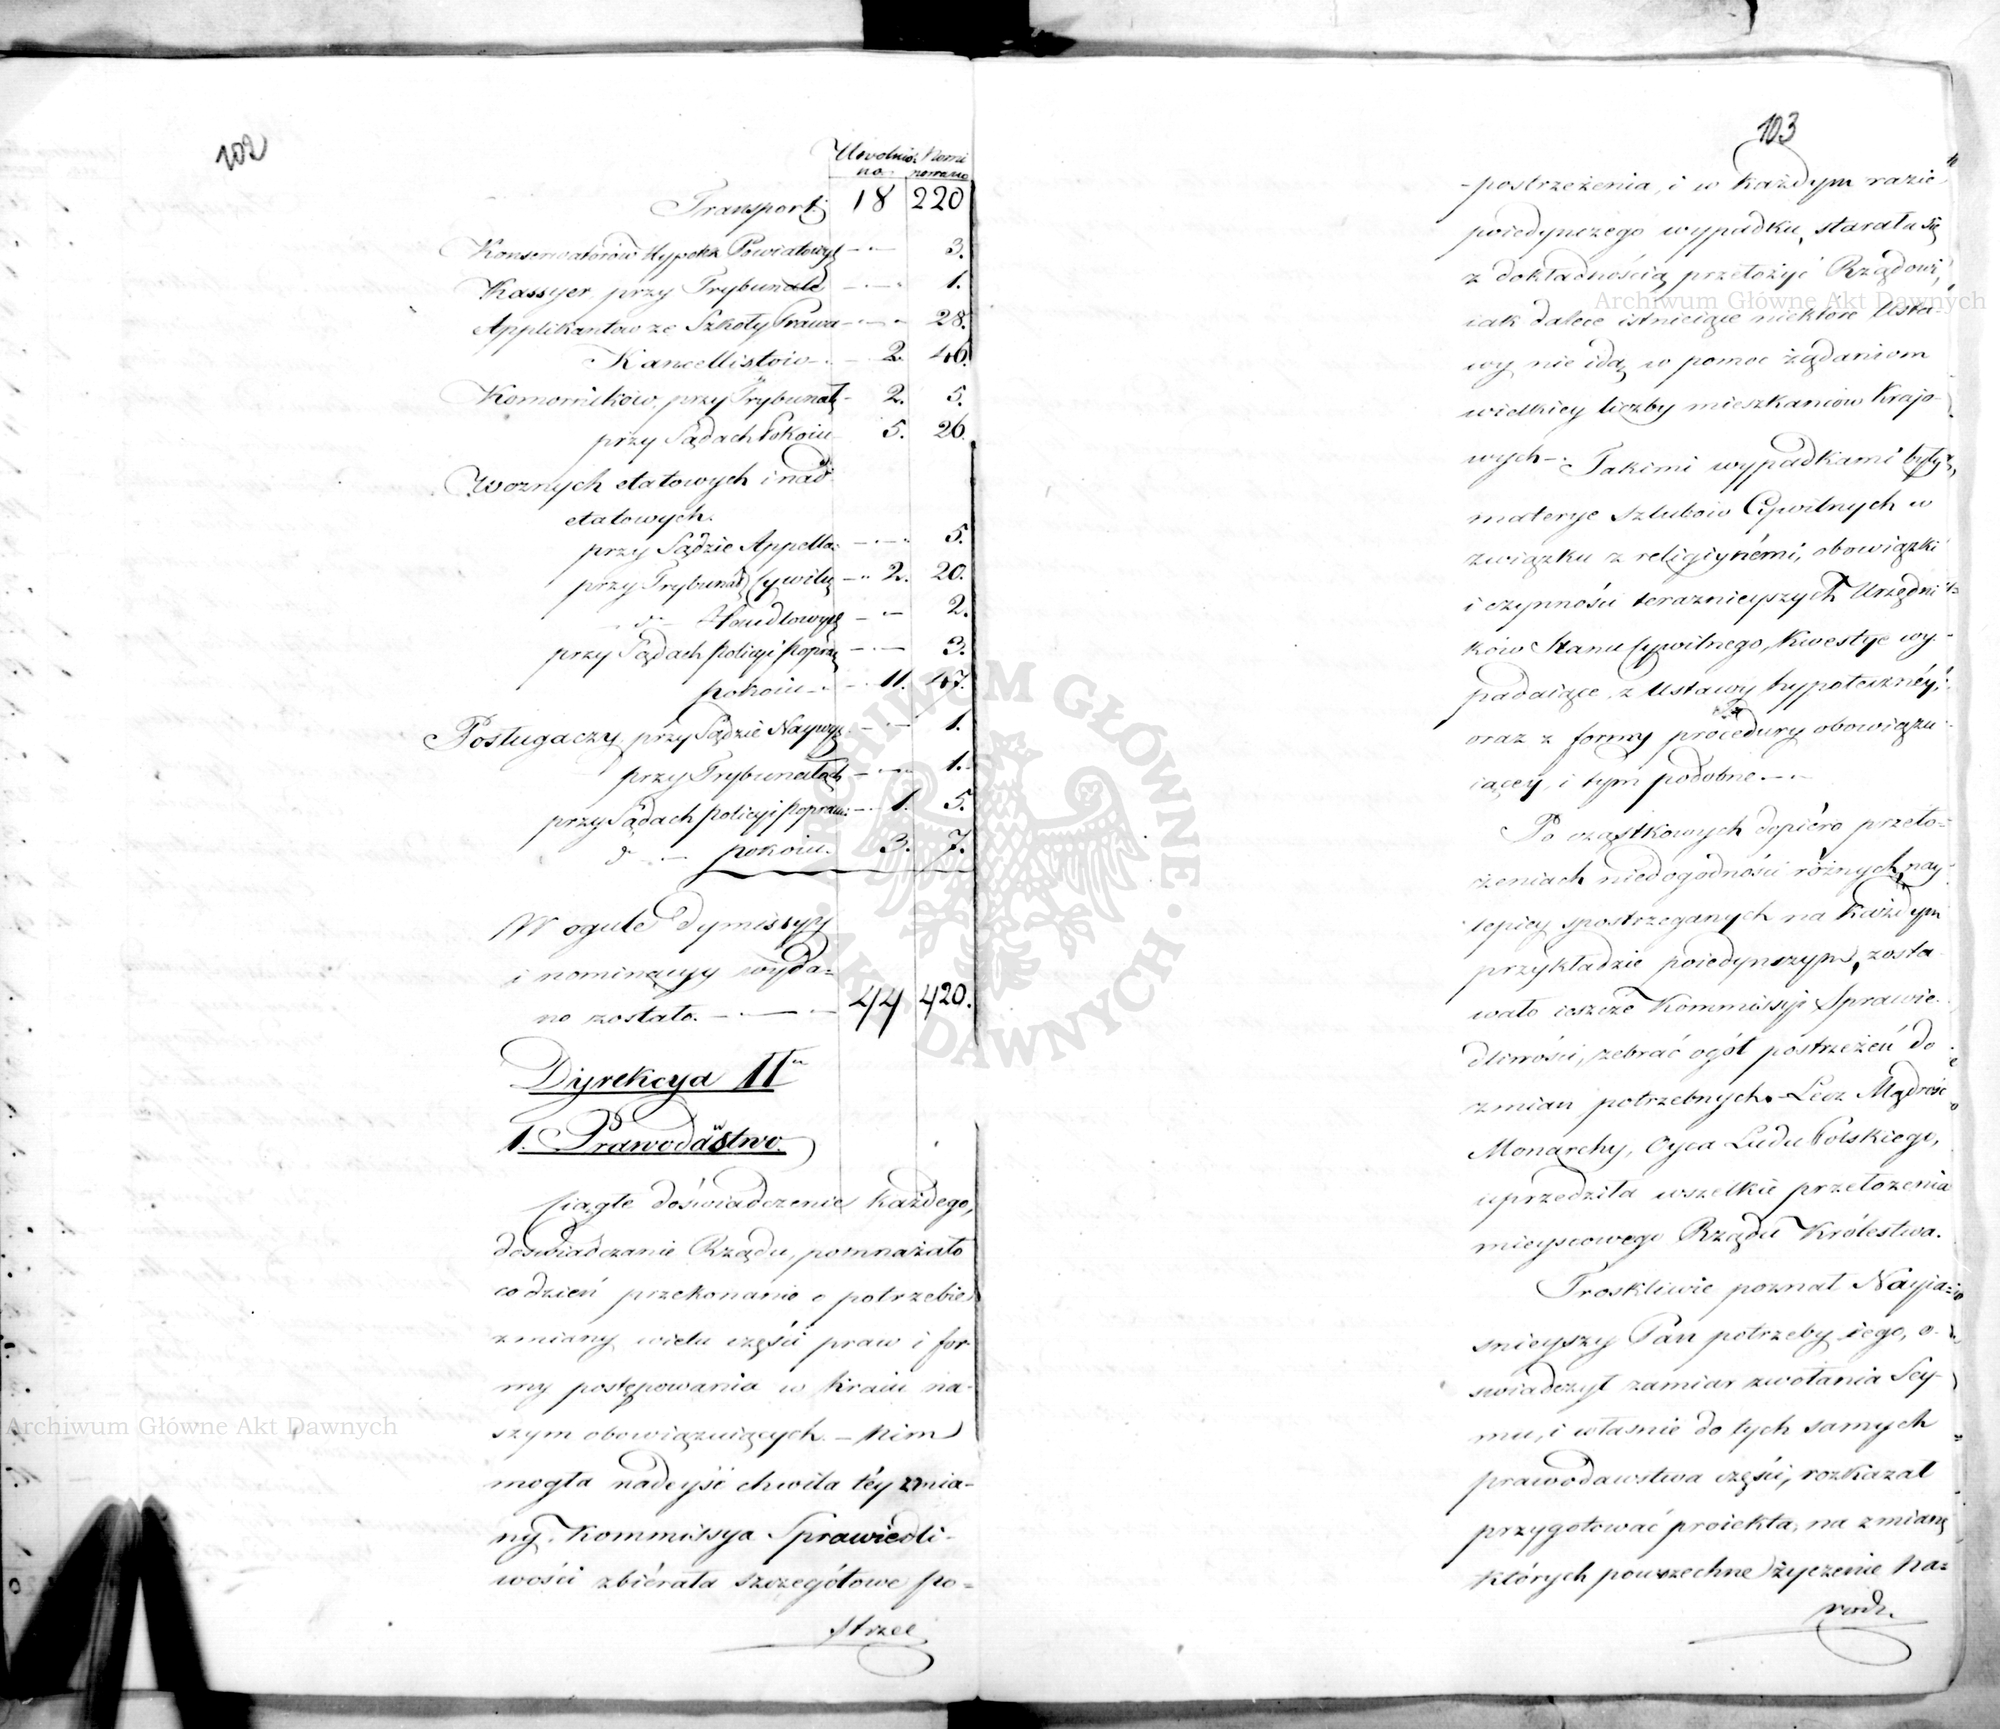 102
Uwolnio- Nomi
no. nowano
Transport: 18 220
Konserwatorów Hypotek Powiatowych 3.
Kassyer przy Trybunale 1.
Applikantow ze Szkoły Prawa 28.
Kancellistów 2. 46.
Komorników przy Trybunał. 2. 5.
przy Sądach Pokoiu 5. 26.
Woznych etatowych i nad
etatowych.
przy Sądzie Appella: 5.
przy Trybunał. Cywiln. 2. 20.
d° Handlowym 2.
przy Sądach Policyi Popraw. 3.
pokoiu 11. 47.
Posługaczy przy Sądzie Naywyż. 1.
przy Trybunałach 1.
przy Sądach Policyi Popraw: 1. 5.
d° pokoiu. 3. 7.
W ogule dymissyy
i nominacyy wyda=
no zostało. 44 420.
Dyrekcya II
1. Prawodawstwo.
Ciągłe doświadczenie każdego,
doświadczanie Rządu, pomnażało
co dzień przekonanie o potrzebie
zmiany wielu części praw i for-
my postępowania w kraiu na-
szym obowiązuiących. – Nim
mogła nadeyść chwila téy zmia-
ny, Kommissya Sprawiedli-
wości zbiérała szczegółowe po=
strze
103
-postrzeżenia, i w każdym razie
poiedynczego wypadku, starała się
z dokładnością przełożyć Rządowi,
iak dalece istnieiące niektóre Usta-
wy nie idą w pomoc żądaniom
wielkiey liczby mieszkańców Krajo-
wych. Takimi wypadkami były
materye szlubów Cywilnych w
związku z religiynémi, obowiązki
i czynności teraznieyszych Urzędni=
ków Stanu Cywilnego, Kwestye wy-
padaiące z Ustawy hypotecznéy,
oraz z formy procedury obowiązu-
iącey, i tym podobne.
Po cząstkowych dopiéro przeło=
żeniach niedogodności różnych, nay-
lepiey spostrzeganych na każdym
przykładzie poiedynczym, zosta-
wało ieszcze Kommissyi Sprawie-
dliwości, zebrać ogół postrzeżeń do
zmian potrzebnych. – Lecz Mądrość
Monarchy, Oyca Ludu Polskiego,
uprzedziła wszelkie przełożenia
mieyscowego Rządu Królestwa.
Troskliwie poznał Nayia=
śnieyszy Pan potrzeby iego, o-
świadczył zamiar zwołania Sey-
mu, i własnie do tych samych
prawodawstwa części, rozkazał
przygotować proiekta, na zmianę
których powszechne życzenie Na=
rodu
Archiwum Główne Akt Dawnych
Archiwum Główne Akt Dawnych
ARCHIWUM GŁÓWNE · AKT DAWNYCH ·